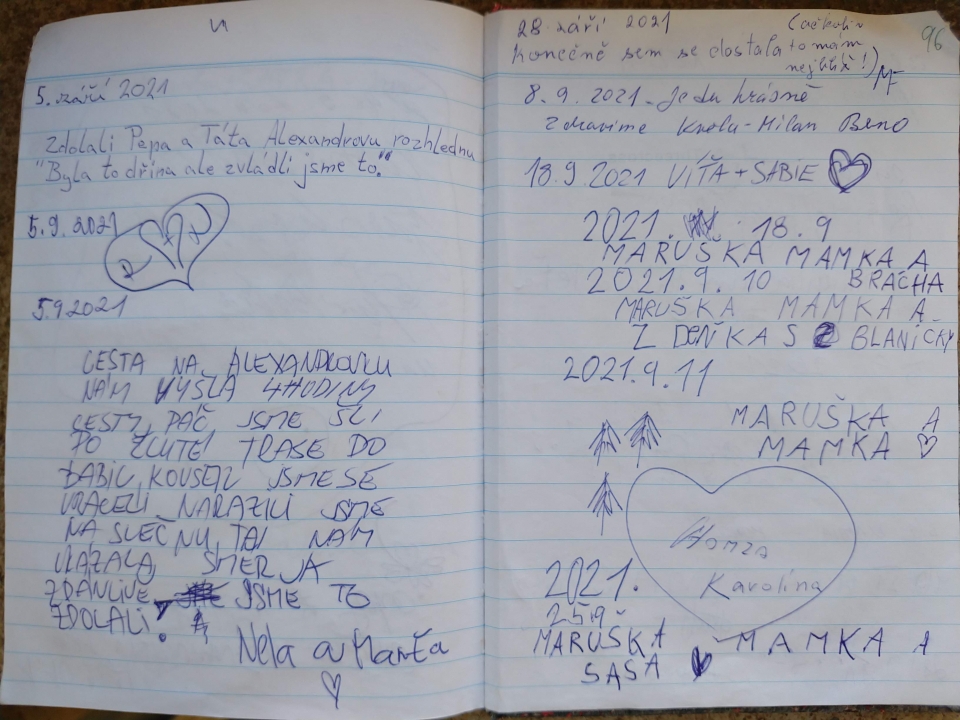 5. září 2021
Zdolali Pepa a Táta Alexandrovu rozhlednu
"Byla to dřina ale zvládli jsme to."
5.9.2021
5.9.2021
CESTA NA ALEXANDROVKU
NÁM VYŠLA 4HODINY
CESTY, PÁČ JSME ŠLI
PO ŽLUTÉ TRASE DO
BABIC, KOUSEK JSME SE
VRACELI NARAZILI JSME
NA SLEČNU, TA NÁM
UKÁZALA SMĚR JÁ
ZDÁNLIVĚ JSME TO
ZDOLALI!
Nela a Marťa
96
28. září 2021 (ačkoliv
Konečně sem se dostala to mám
nejblíž!) MF
8.9.2021 - Je tu krásně
Zdravíme Milan Brno
18.9.2021 VÍŤA + SABIE
2021. 18.9
MARUŠKA MAMKA A
2021.9.10 BRÁCHA
MARUŠKA MAMKA A
Z DEŇKA S BLANIČKY
2021.9.11
MARUŠKA A
MAMKA
Honza
Karolína
2021.
25.9
MARUŠKA MAMKA A
SAŠA